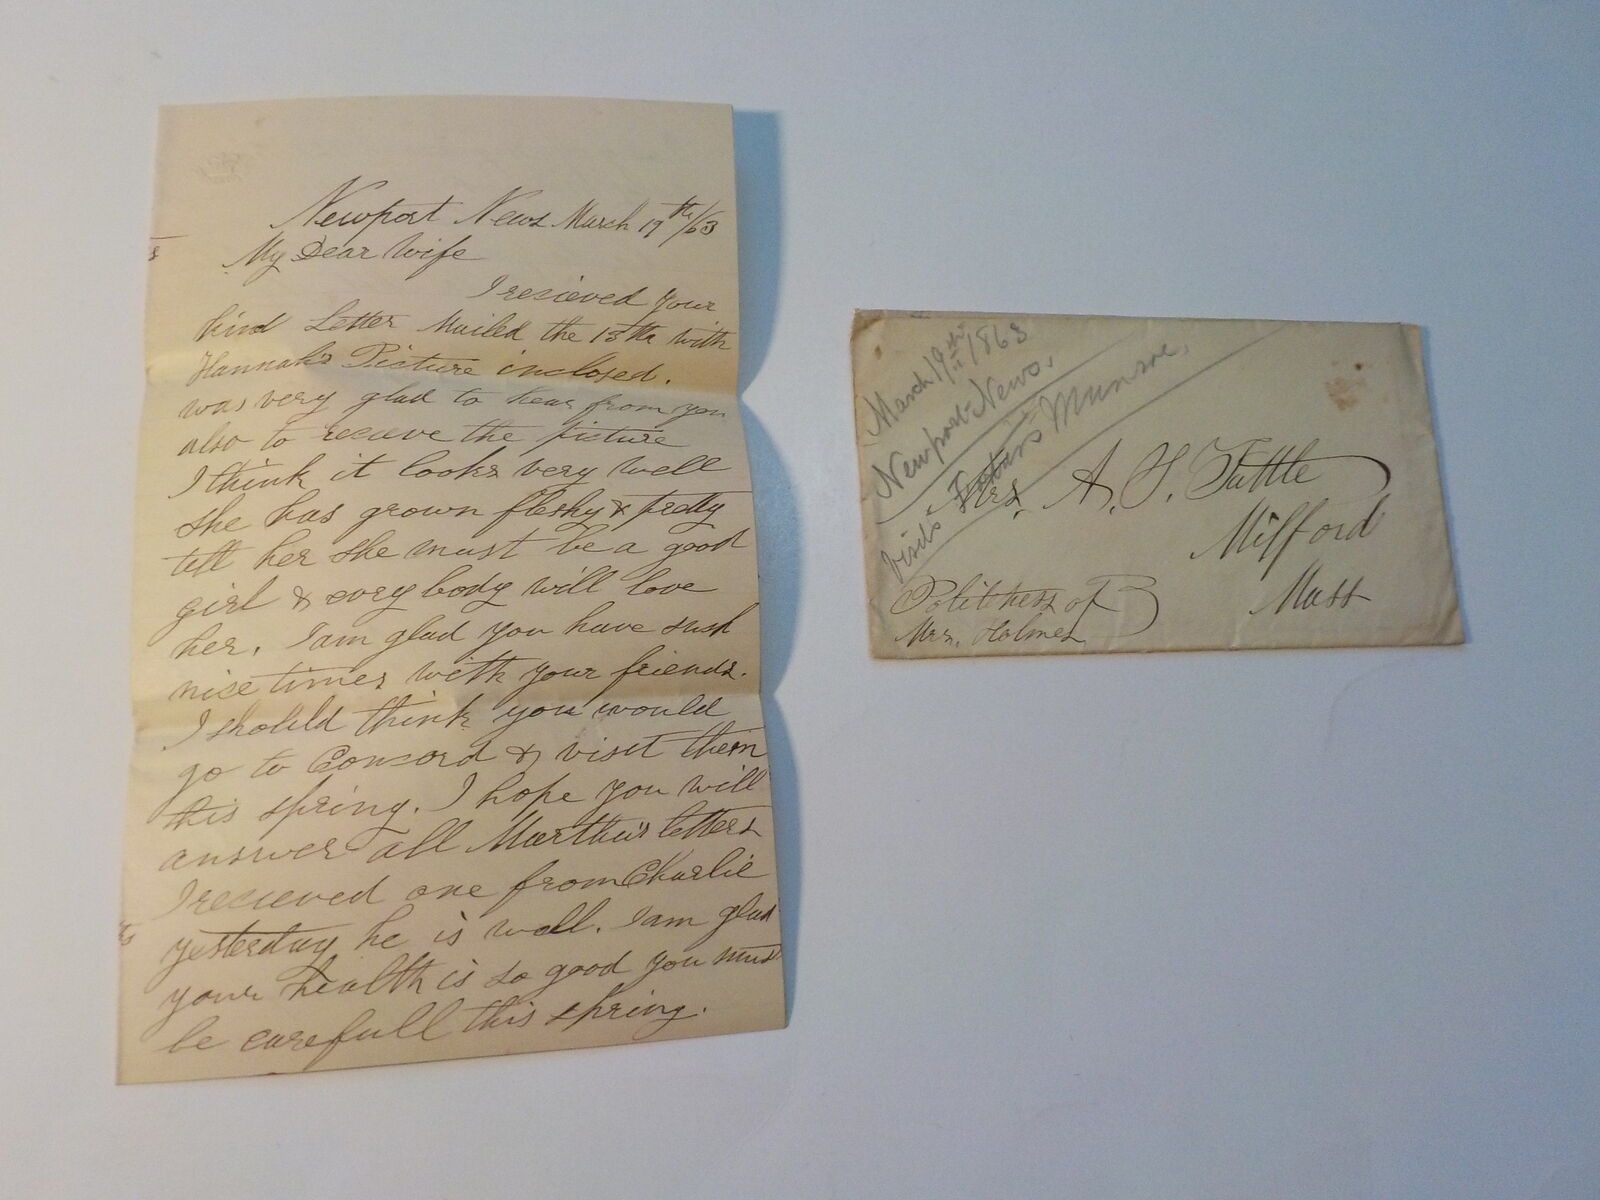 Newport News March 19th/63
My Dear Wife
I resieved your
kind Letter Mailed the 15th with
Hannah's Picture inclosed.
was very glad to hear from you
also to recieve the picture
I think it looks very well
she has grown fleshy & pretty
tell her she must be a good
girl & every body will love
her. I am glad you have such
nise times with your friends.
I should think you would
go to Concord & visit them
this spring. I hope you will
answer all Martha's letters
I recieved one from Charlie
yesterday he is well. I am glad
your health is so good you must
be carefull this spring.
March 19th 1863
Newport-News.
Visits Munroe.
Mrs. A. S. Tuttle
Milford
Mass
Politeness of
Mrs. Holmes